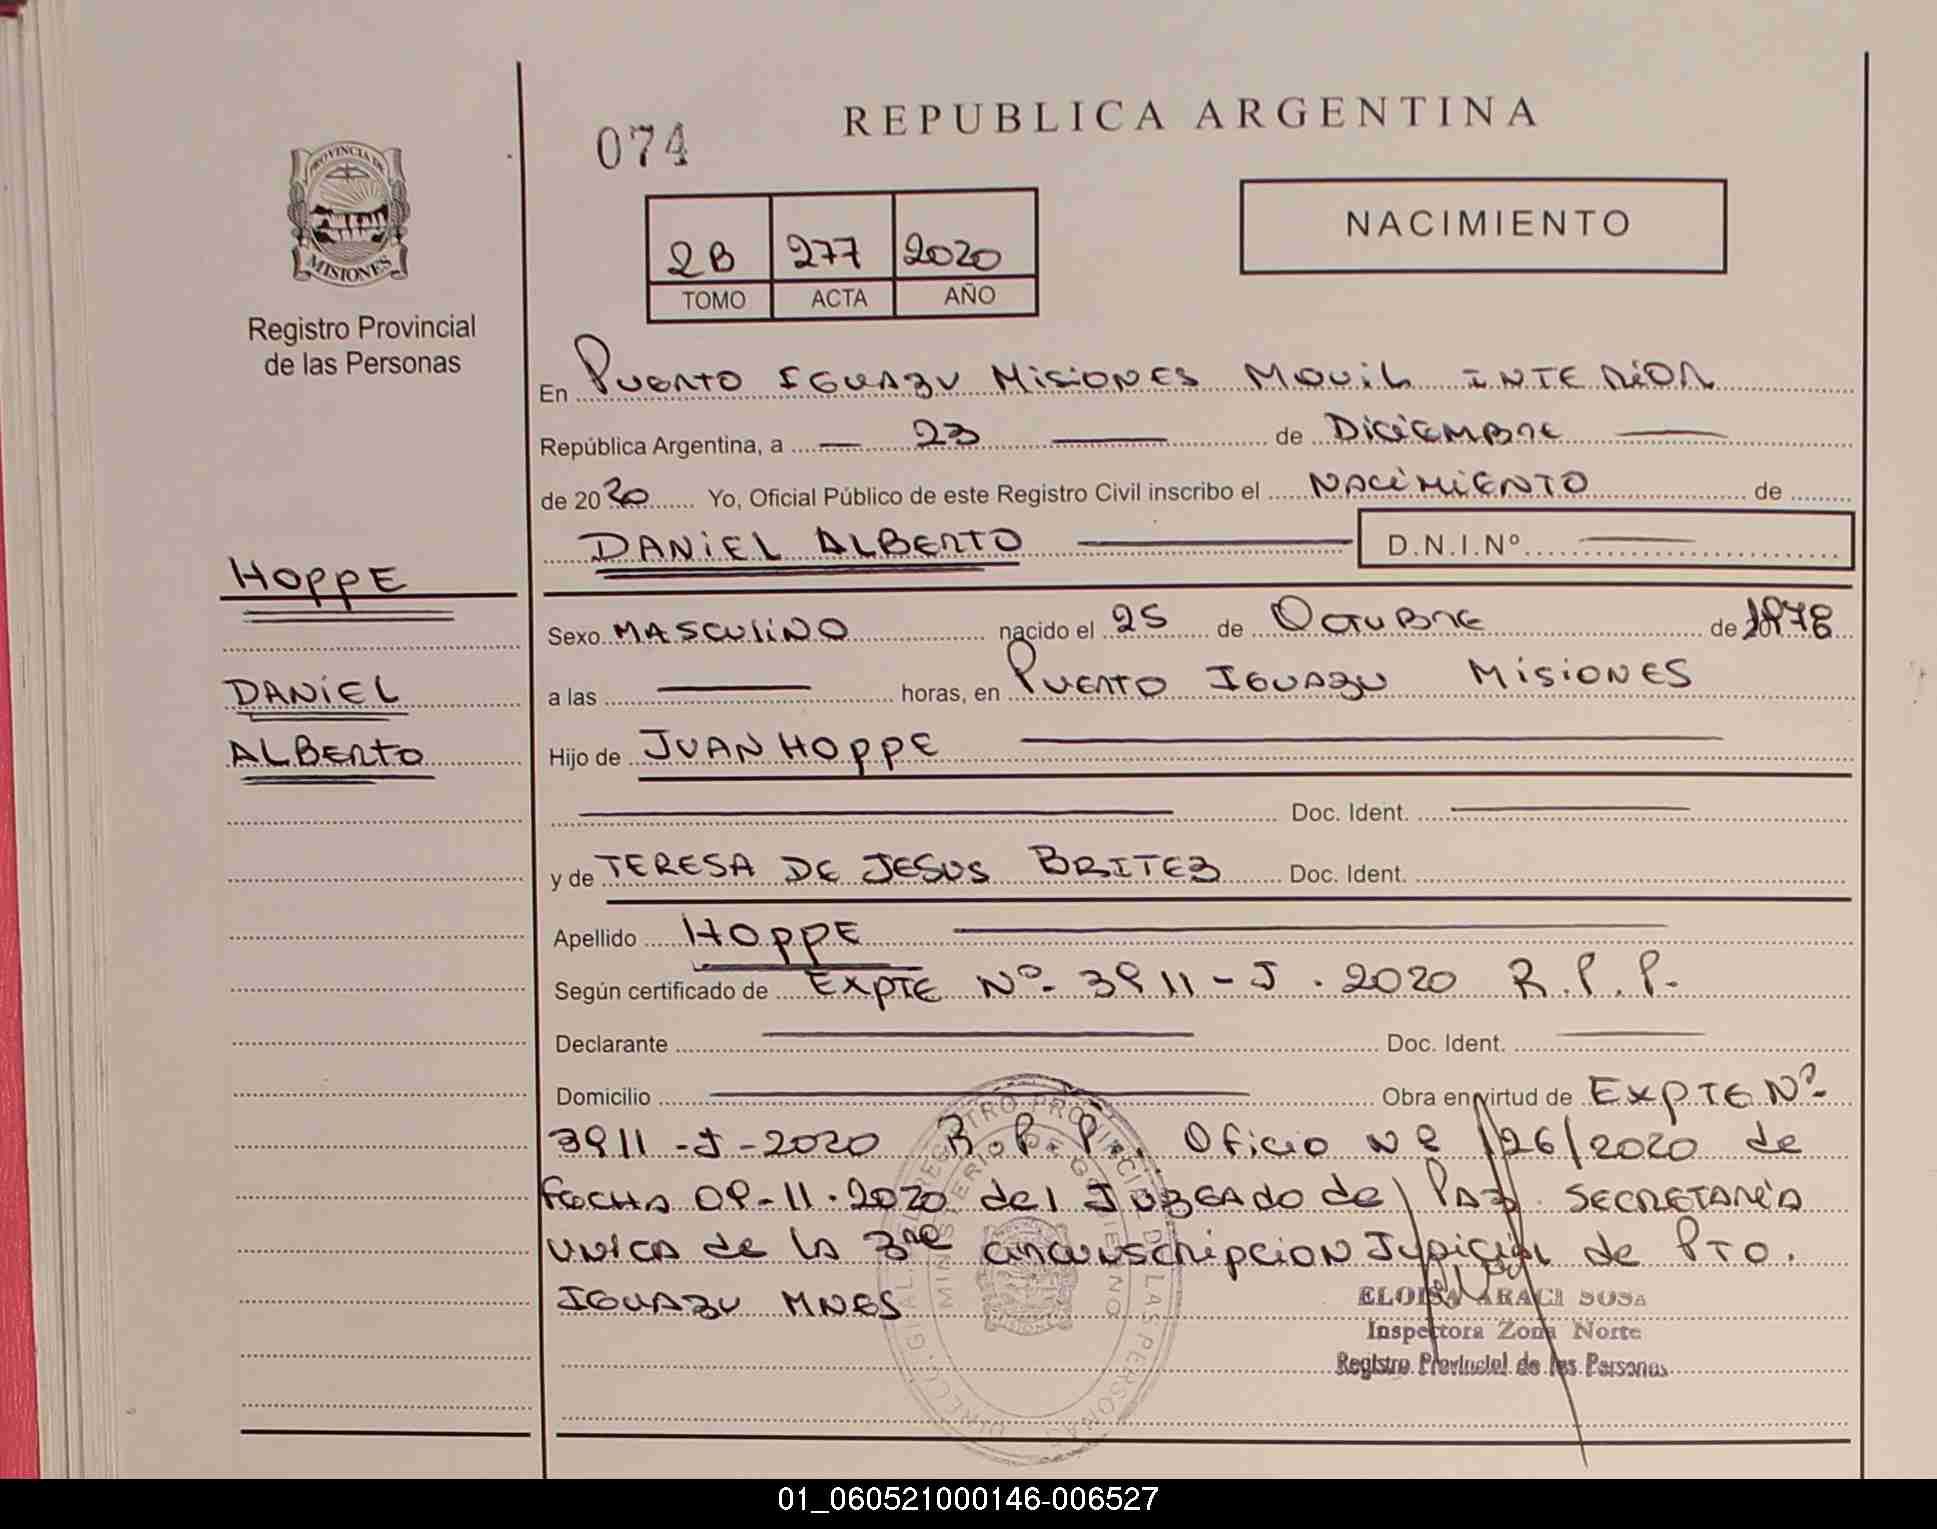 REPUBLICA ARGENTINA
074
PROVINCIA DE
MISIONES
Registro Provincial
de las Personas
NACIMIENTO
2B 277 2020
TOMO ACTA AÑO
En Puerto Iguazu Misiones Movil Interior
República Argentina, a 23 de Diciembre
de 2020 Yo, Oficial Público de este Registro Civil inscribo el Nacimiento de
Daniel Alberto D.N.I.Nº
HOPPE
DANIEL
ALBERTO
Sexo Masculino nacido el 25 de Octubre de 1978
a las horas, en Puerto Iguazu Misiones
Hijo de JUAN HOPPE
Doc. Ident.
y de TERESA DE JESUS BRITEZ Doc. Ident.
Apellido HOPPE
Según certificado de Expte Nº 3911-J.2020 R.P.P.
Declarante Doc. Ident.
Domicilio Obra en virtud de Expte Nº
3911-J-2020 R.P.P. Oficio Nº 126/2020 de
fecha 09-11-2020 del Juzgado de Paz Secretaria
unica de la 3re circunscripcion Judicial de Pto.
Iguazu Mnes
ELOISA ARACI SOSA
Inspectora Zona Norte
Registro Provincial de las Personas
01_060521000146-006527